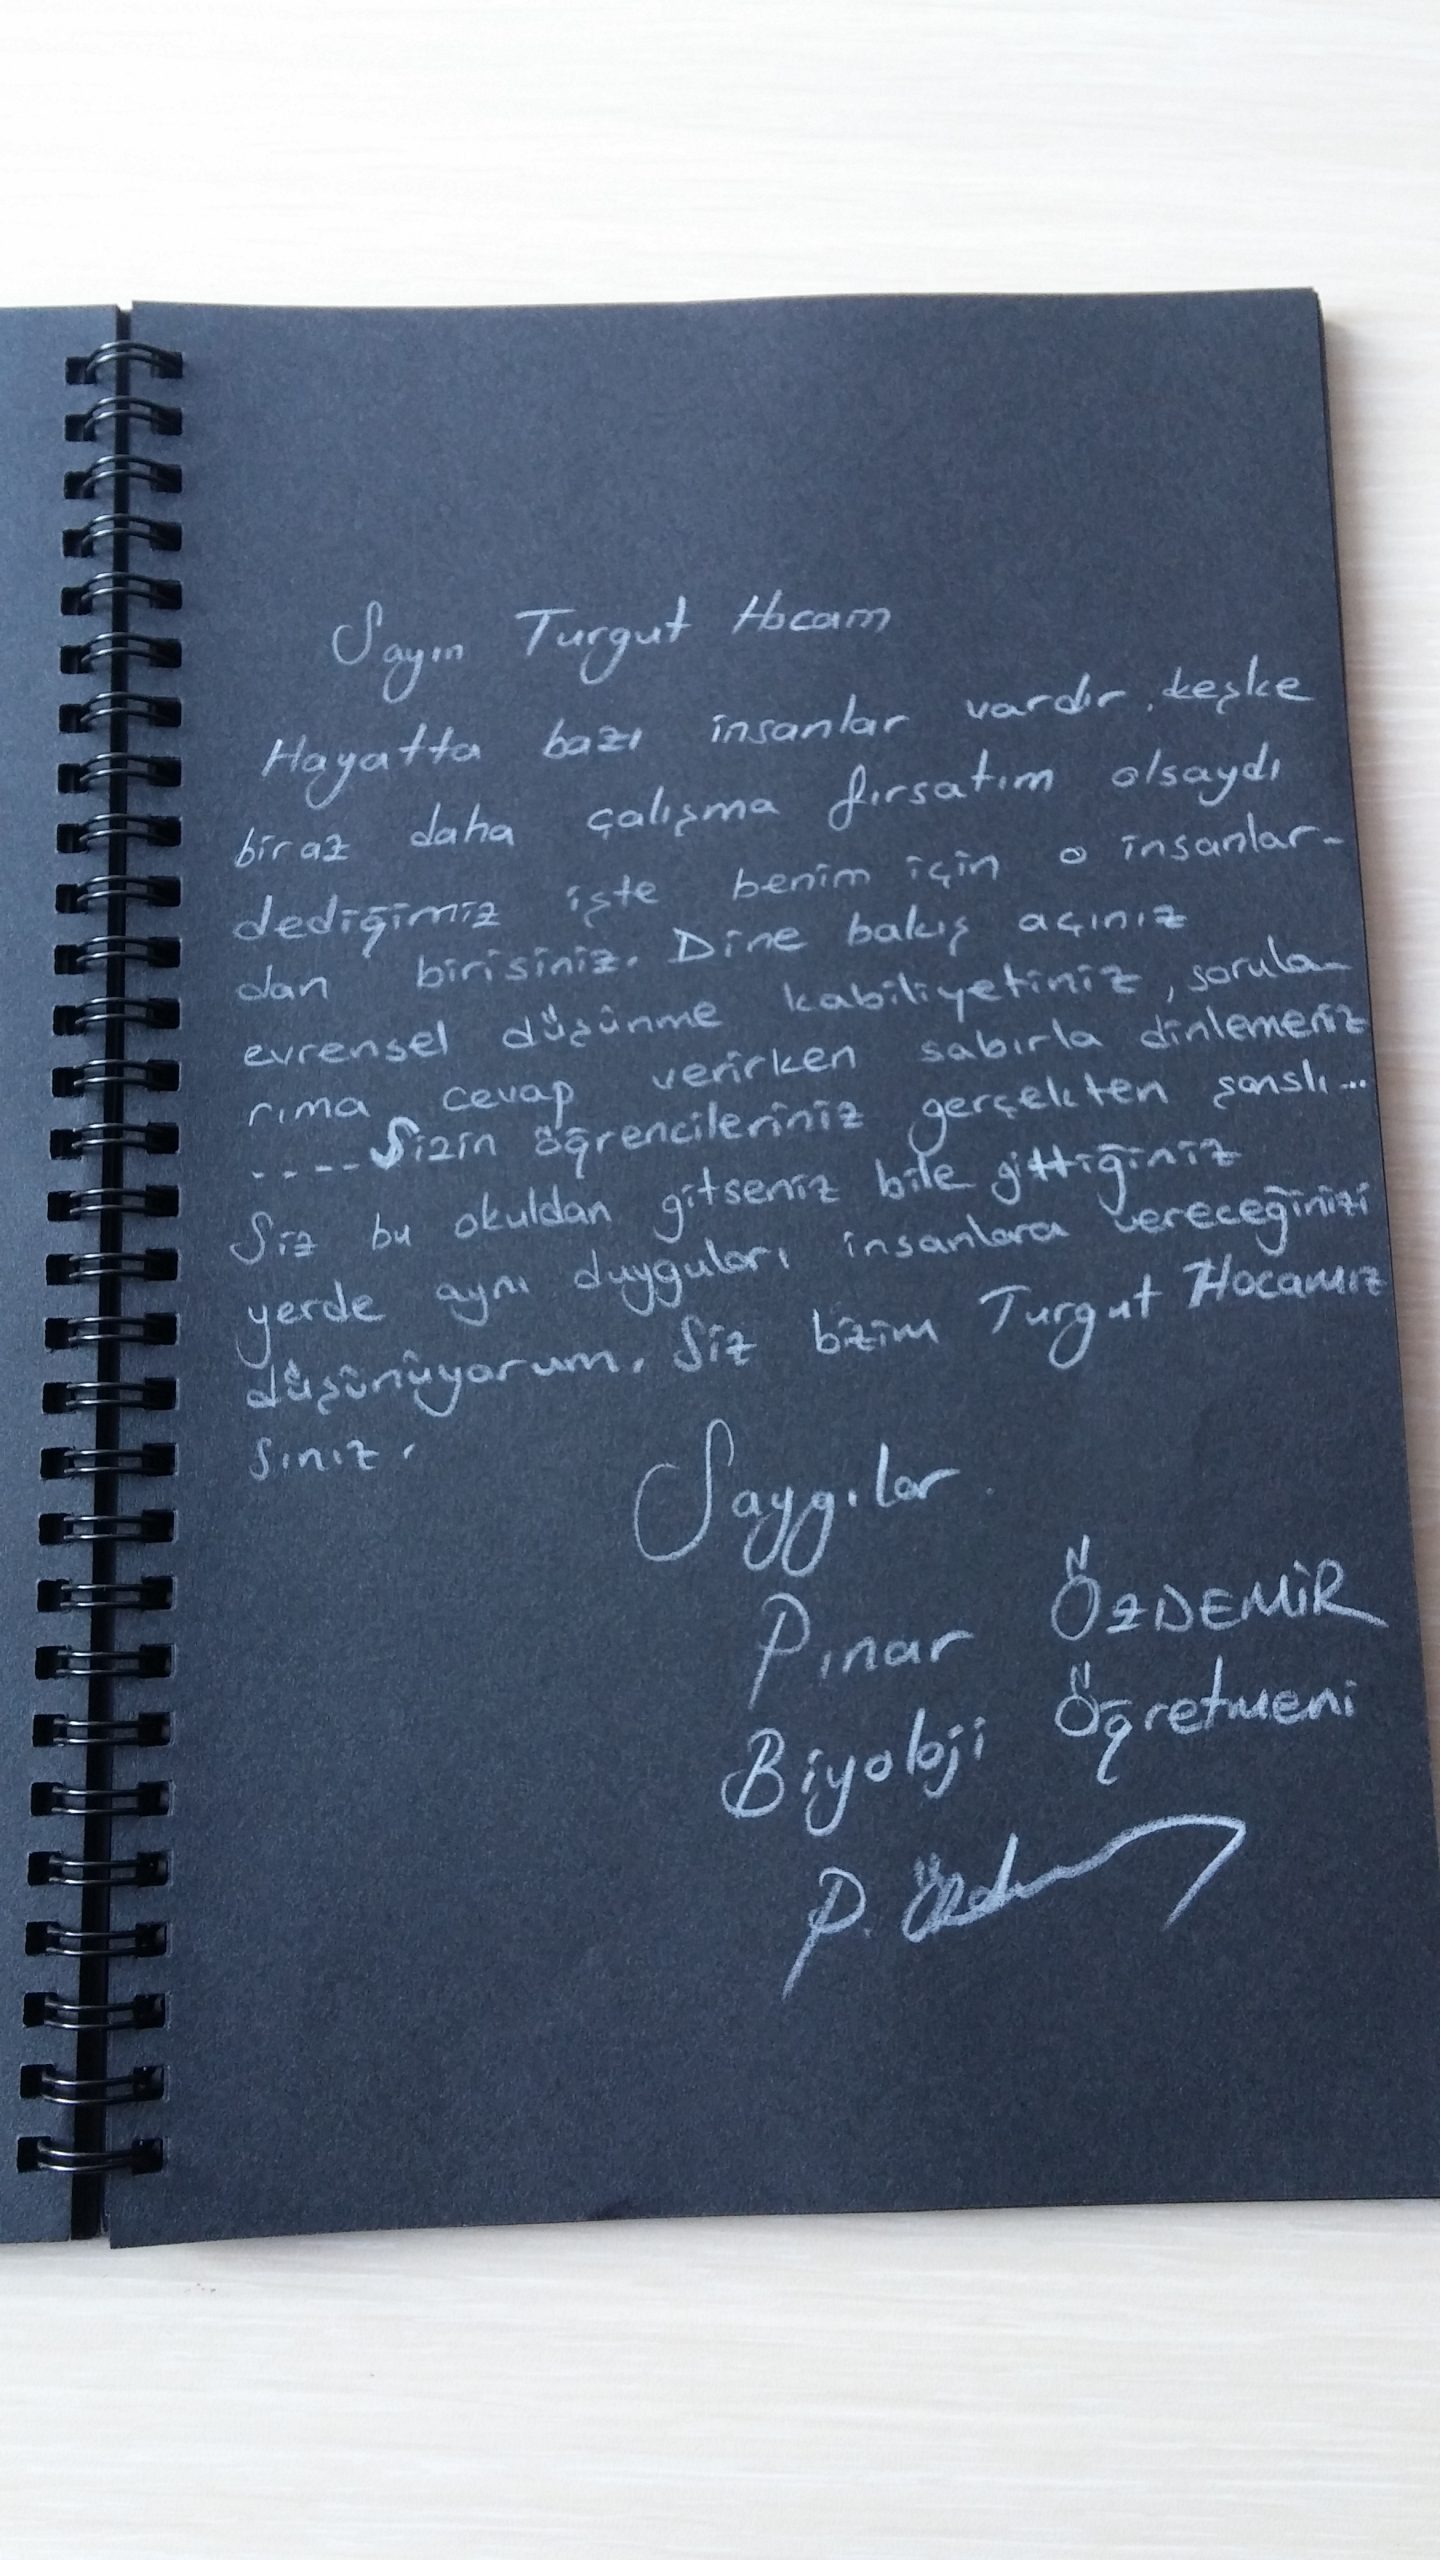 Sayın Turgut Hocam
Hayatta bazı insanlar vardır, keşke
biraz daha çalışma fırsatım olsaydı
dediğimiz işte benim için o insanlar-
dan birisiniz. Dine bakış açınız
evrensel düşünme kabiliyetiniz, sorula-
rıma cevap verirken sabırla dinlemeniz
.... Sizin öğrencileriniz gerçekten şanslı...
Siz bu okuldan gitseniz bile gittiğiniz
yerde aynı duyguları insanlara vereceğinizi
düşünüyorum. Siz bizim Turgut Hocamız
sınız.
Saygılar.
Pınar ÖZDEMİR
Biyoloji Öğretmeni